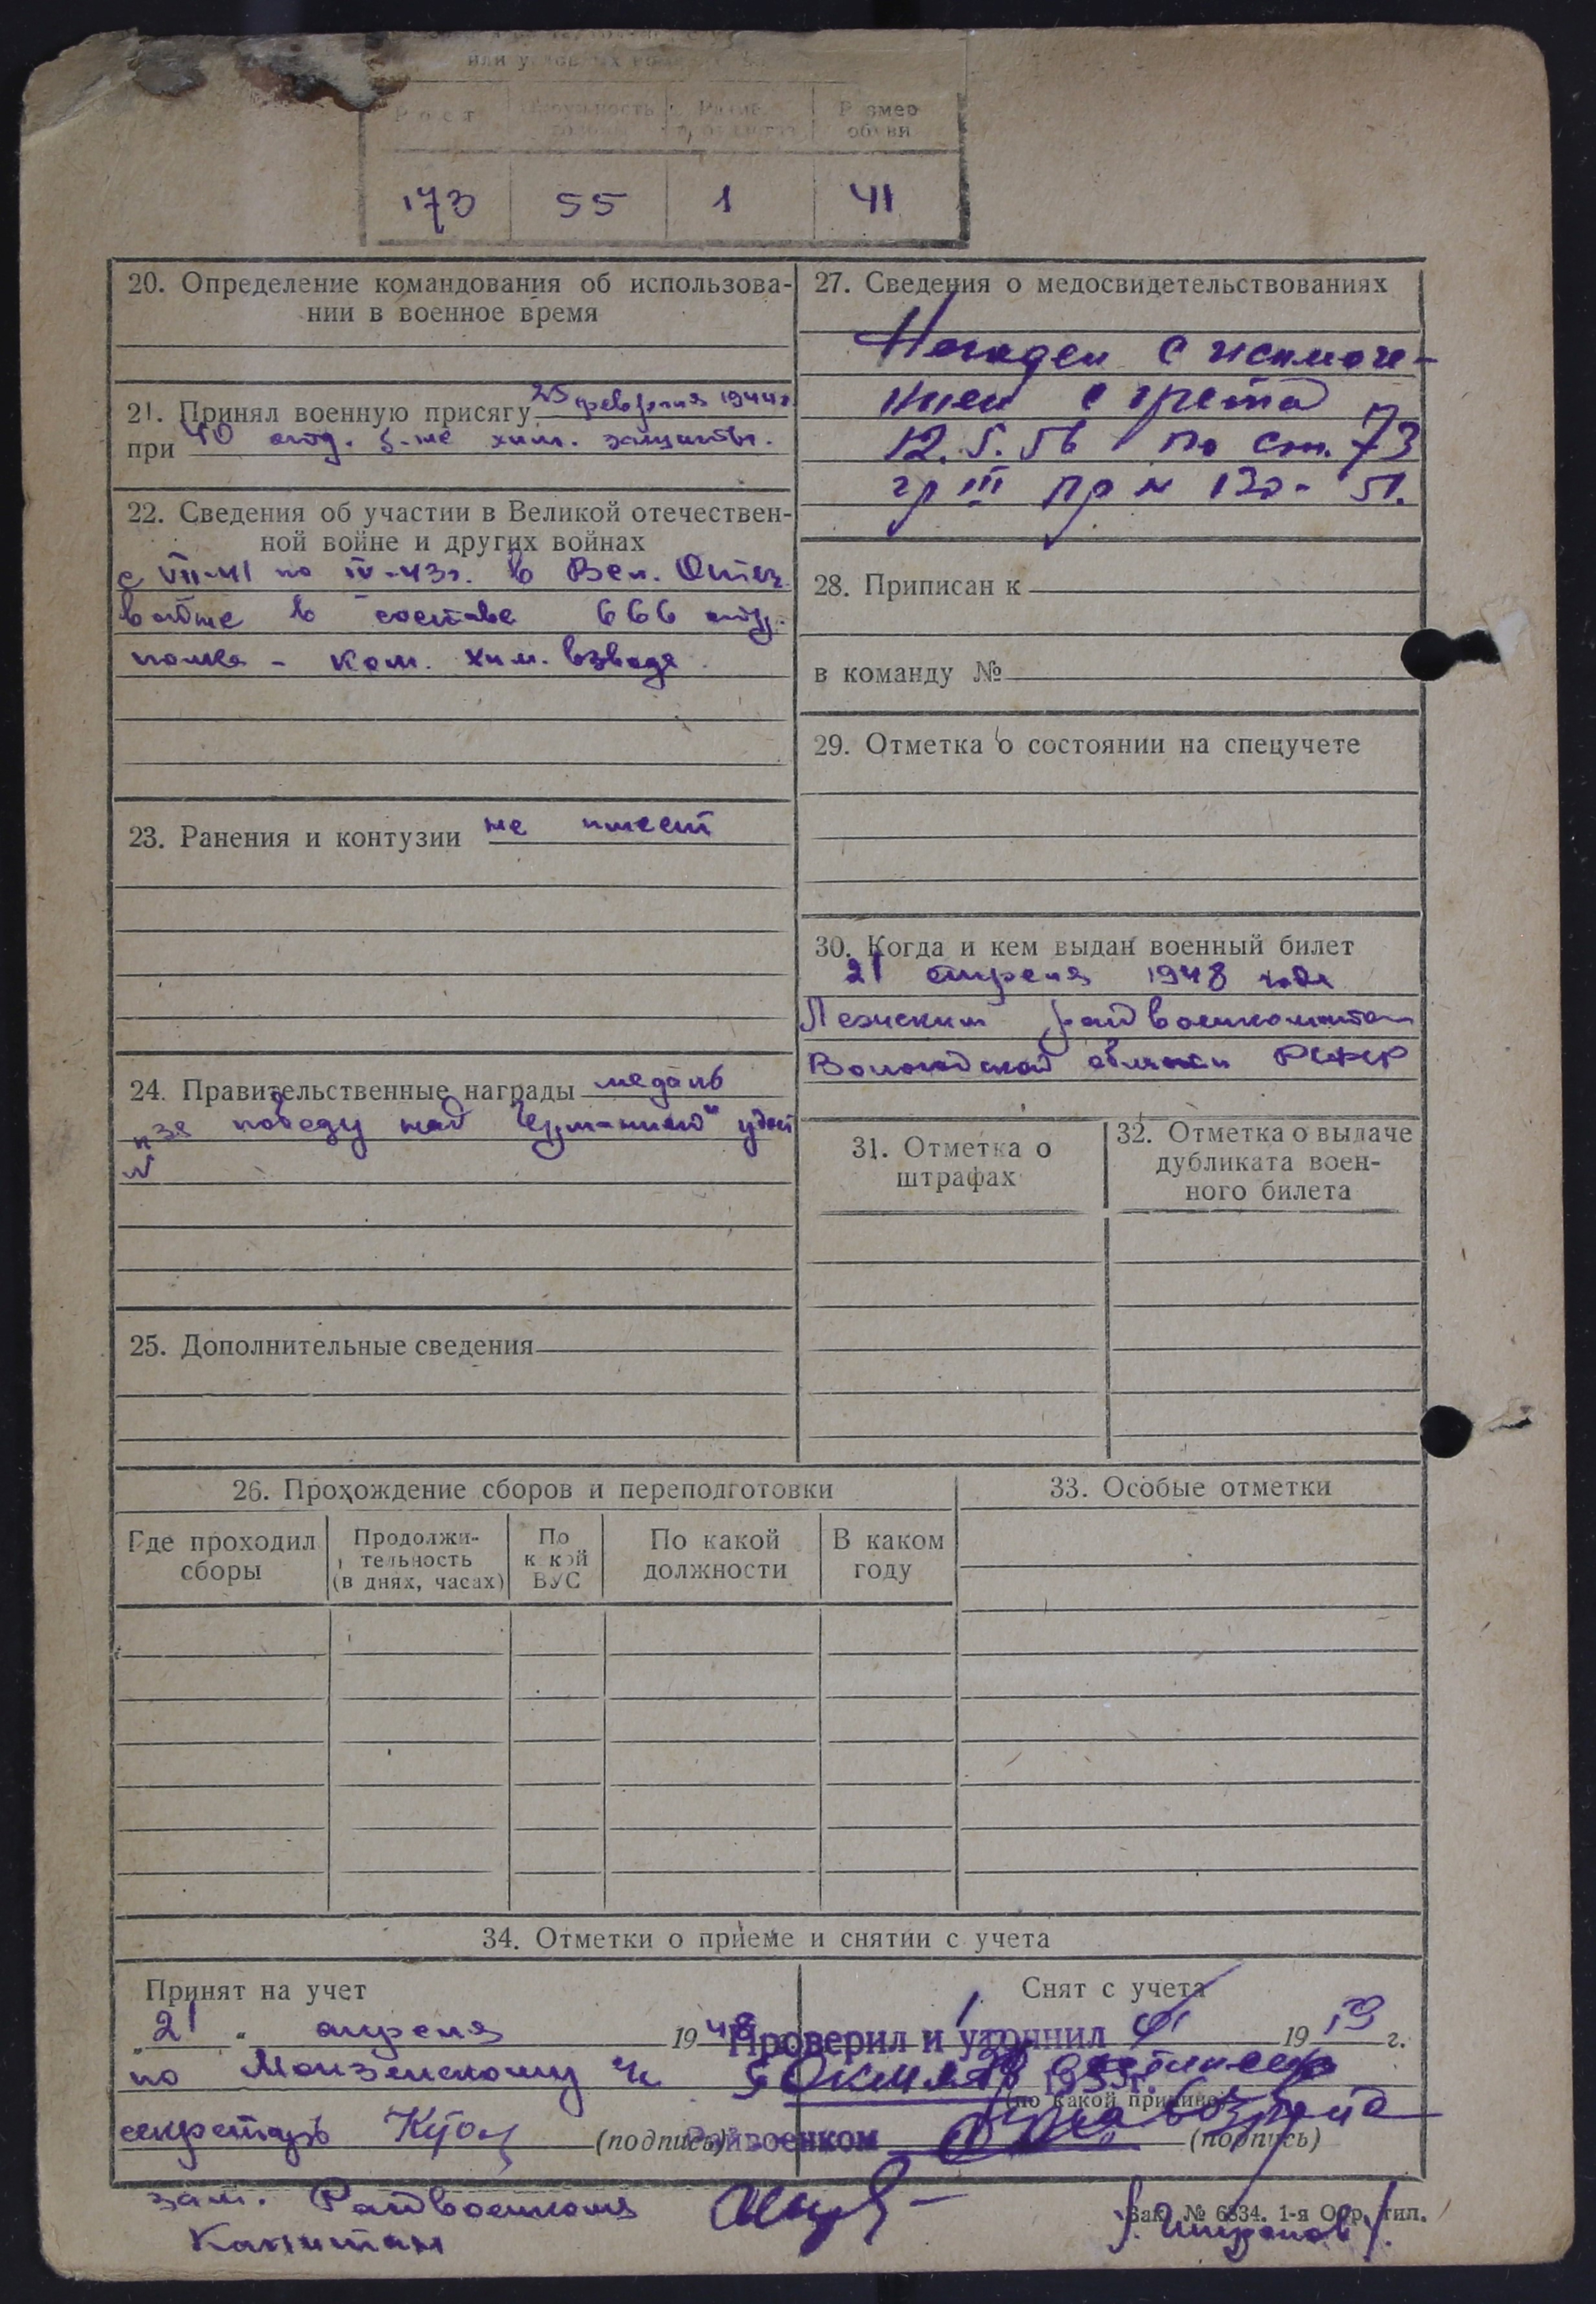 или
Рост
Размер
обуви
173 55 1 41
20. Определение командования об использова-
нии в военное время
21. Принял военную присягу 25 февраля 1944г
при 40 отд. б-не хим. защиты.
22. Сведения об участии в Великой отечествен-
ной войне и других войнах
с VII-41 по IV-43г. в Вел. Отеч.
войне в составе 666 отд.
полка - ком. хим. взвода.
23. Ранения и контузии не имеет
24. Правительственные награды медаль
"За победу над Германией" удост
№
25. Дополнительные сведения
27. Сведения о медосвидетельствованиях
Негоден с исключе-
нием с учета
12.5.56 по ст. 73
гр III пр № 130-51.
28. Приписан к
в команду №
29. Отметка о состоянии на спецучете
30. Когда и кем выдан военный билет
21 апреля 1948 года
Лежским райвоенкоматом
Вологодской области РСФСР
31. Отметка о
штрафах
32. Отметка о выдаче
дубликата воен-
ного билета
26. Прохождение сборов и переподготовки
Где проходил
сборы
Продолжи-
тельность
(в днях, часах)
По
какой
ВУС
По какой
должности
В каком
году
33. Особые отметки
34. Отметки о приеме и снятии с учета
Принят на учет
"21" апреля 1948
по Монзенскому
секретарь (подпись)
зам. Райвоенкома
Капитан
Снят с учета
19 г.
Проверил и уточнил
1953г.
(по какой причине)
возраста
Райвоенком
(подпись)
Зак. № 6834. 1-я Обр. тип.